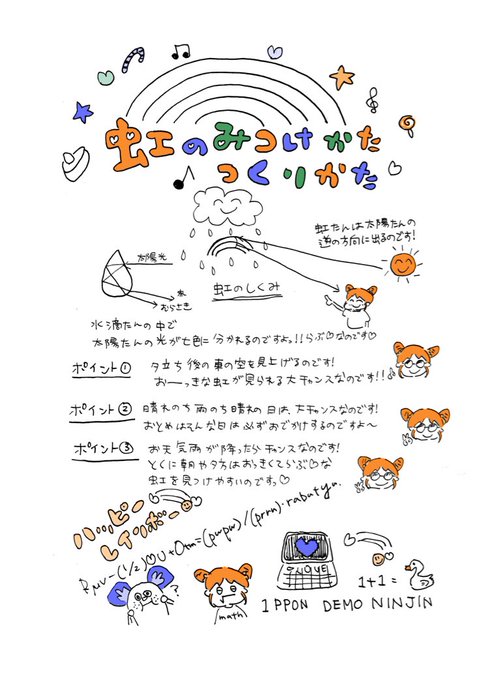 虹のみつけかた
つくりかた
虹たんは太陽たんの
逆の方向に出るのです!
太陽光
赤
むらさき
虹のしくみ
水滴たんの中で
太陽たんの光が七色に分かれるのですよっ!!らぶ♡なのです♡
ポイント①
夕立ち後の東の空を見上げるのです!
おーっきな虹が見られる大チャンスなのです!!
ポイント②
晴れのち雨のち晴れの日は、大チャンスなのです!
おとめはそんな日は必ずおでかけするのですよ〜
ポイント③
お天気雨が降ったらチャンスなのです!
とくに朝や夕方はおっきくてらぶ♡な
虹を見つけやすいのですっ♡
ハッピー
レインボー
?
math
1+1=
1PPON DEMO NINJIN